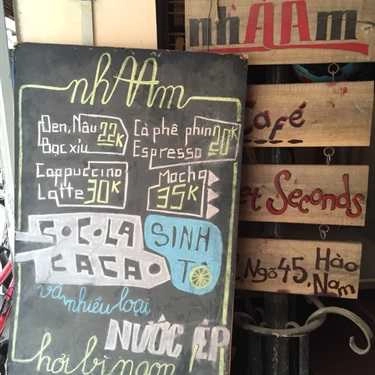 nhAAm
Đen, Nâu 22K
Bạc xỉu
Cà phê phin 20K
Espresso
Cappuccino
Latte 30K
Mocha
35K
SOCOLA
CACAO
SINH
TỐ
và nhiều loại
NƯỚC ÉP
hơi bị ngon
nhAAm
Café
Seconds
Ngõ 45, Hào
Nam